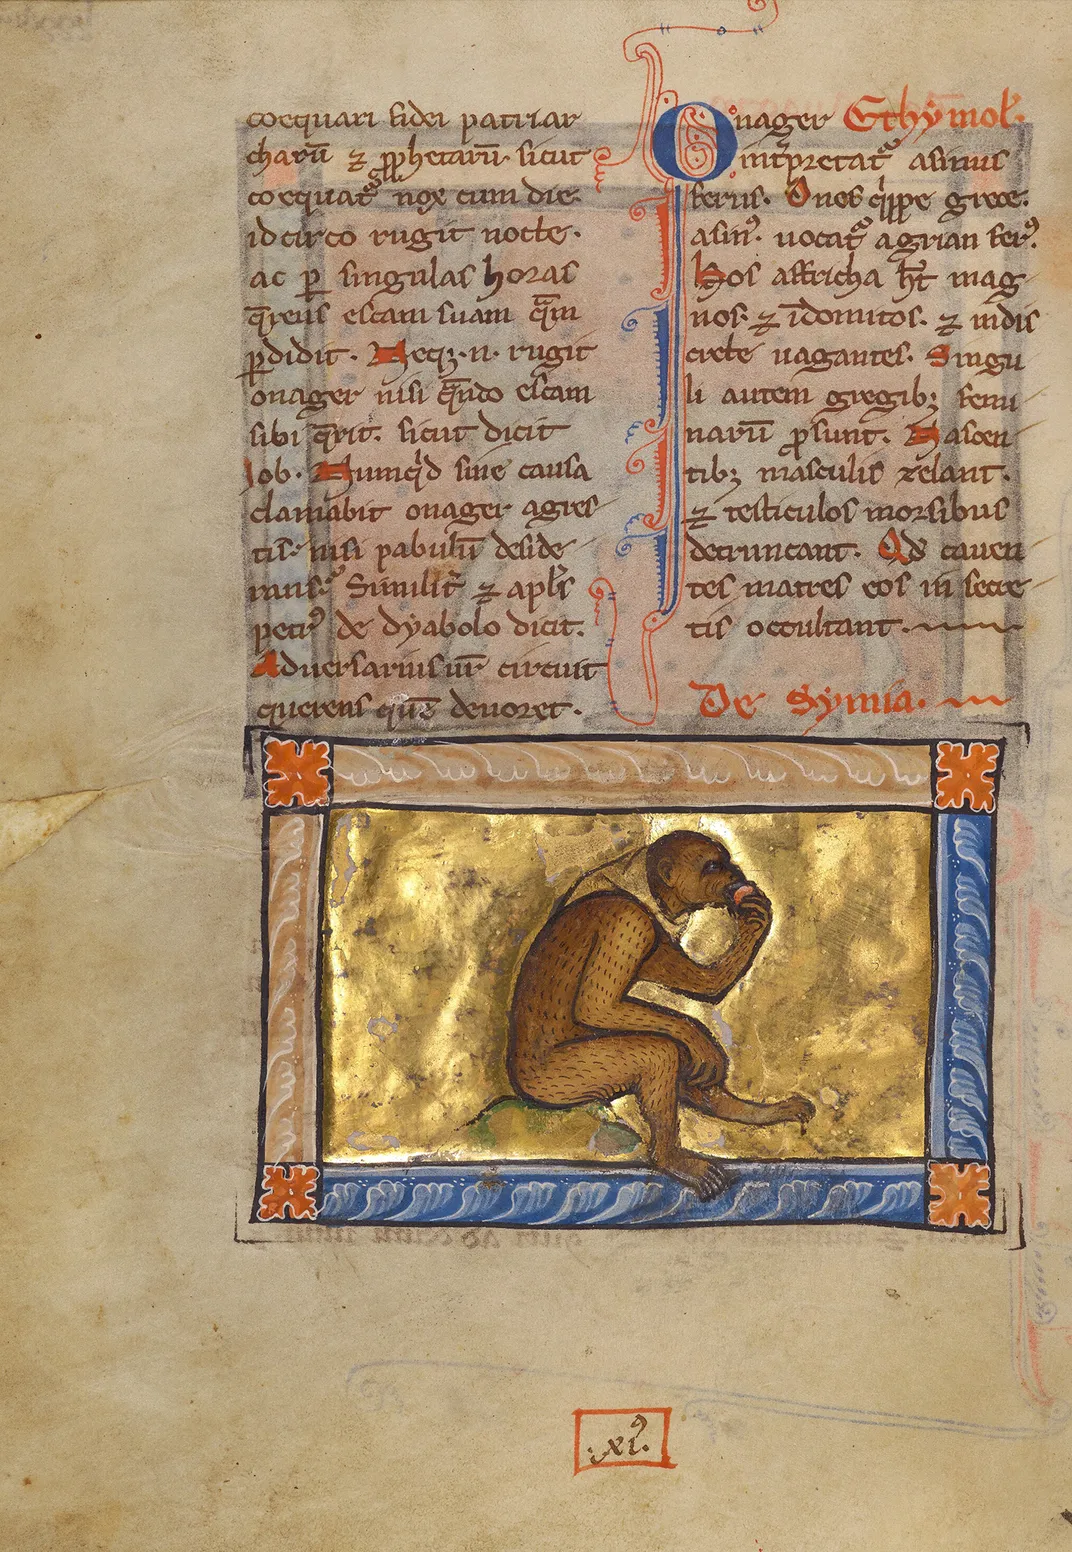 coequari fidei patriar
charū ⁊ ꝓphetarū sicut
coequat᷒ nox cum die.
idcirco rugit nocte.
ac ꝑ singulas horas
q̄rens escam suam q̄m
ꝑdidit. Neqꝫ .n. rugit
onager nisi q̄ndo escam
sibi q̄rit. sicut dicit
Job. Numqͥd sine causa
clamabit onager agres
tis nisi pabulū deside
Similit᷑ ⁊ apl's
petrꝰ de dyabolo dicit.
Aduersarius ur̄ circuit
querens quē deuoret.
Onager Ethymol'.
int̓pretat᷑ asinus
ferus. Onos qͥppe grece.
asinꝰ. uocat᷑ agrian ferꝰ.
Hos affricha ht̄ mag
nos. ⁊ īdomitos. ⁊ indis
crete uagantes. Singu
li autem gregibꝫ femi
narū p̄sunt. Nascen
tibꝫ masculis zelant.
⁊ testiculos morsibus
detruncant. Qd̓ cauen
tes matres eos in secre
tis occultant.
De Symia.
.xiꝰ.